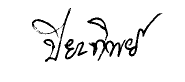 ปิยะทิพย์